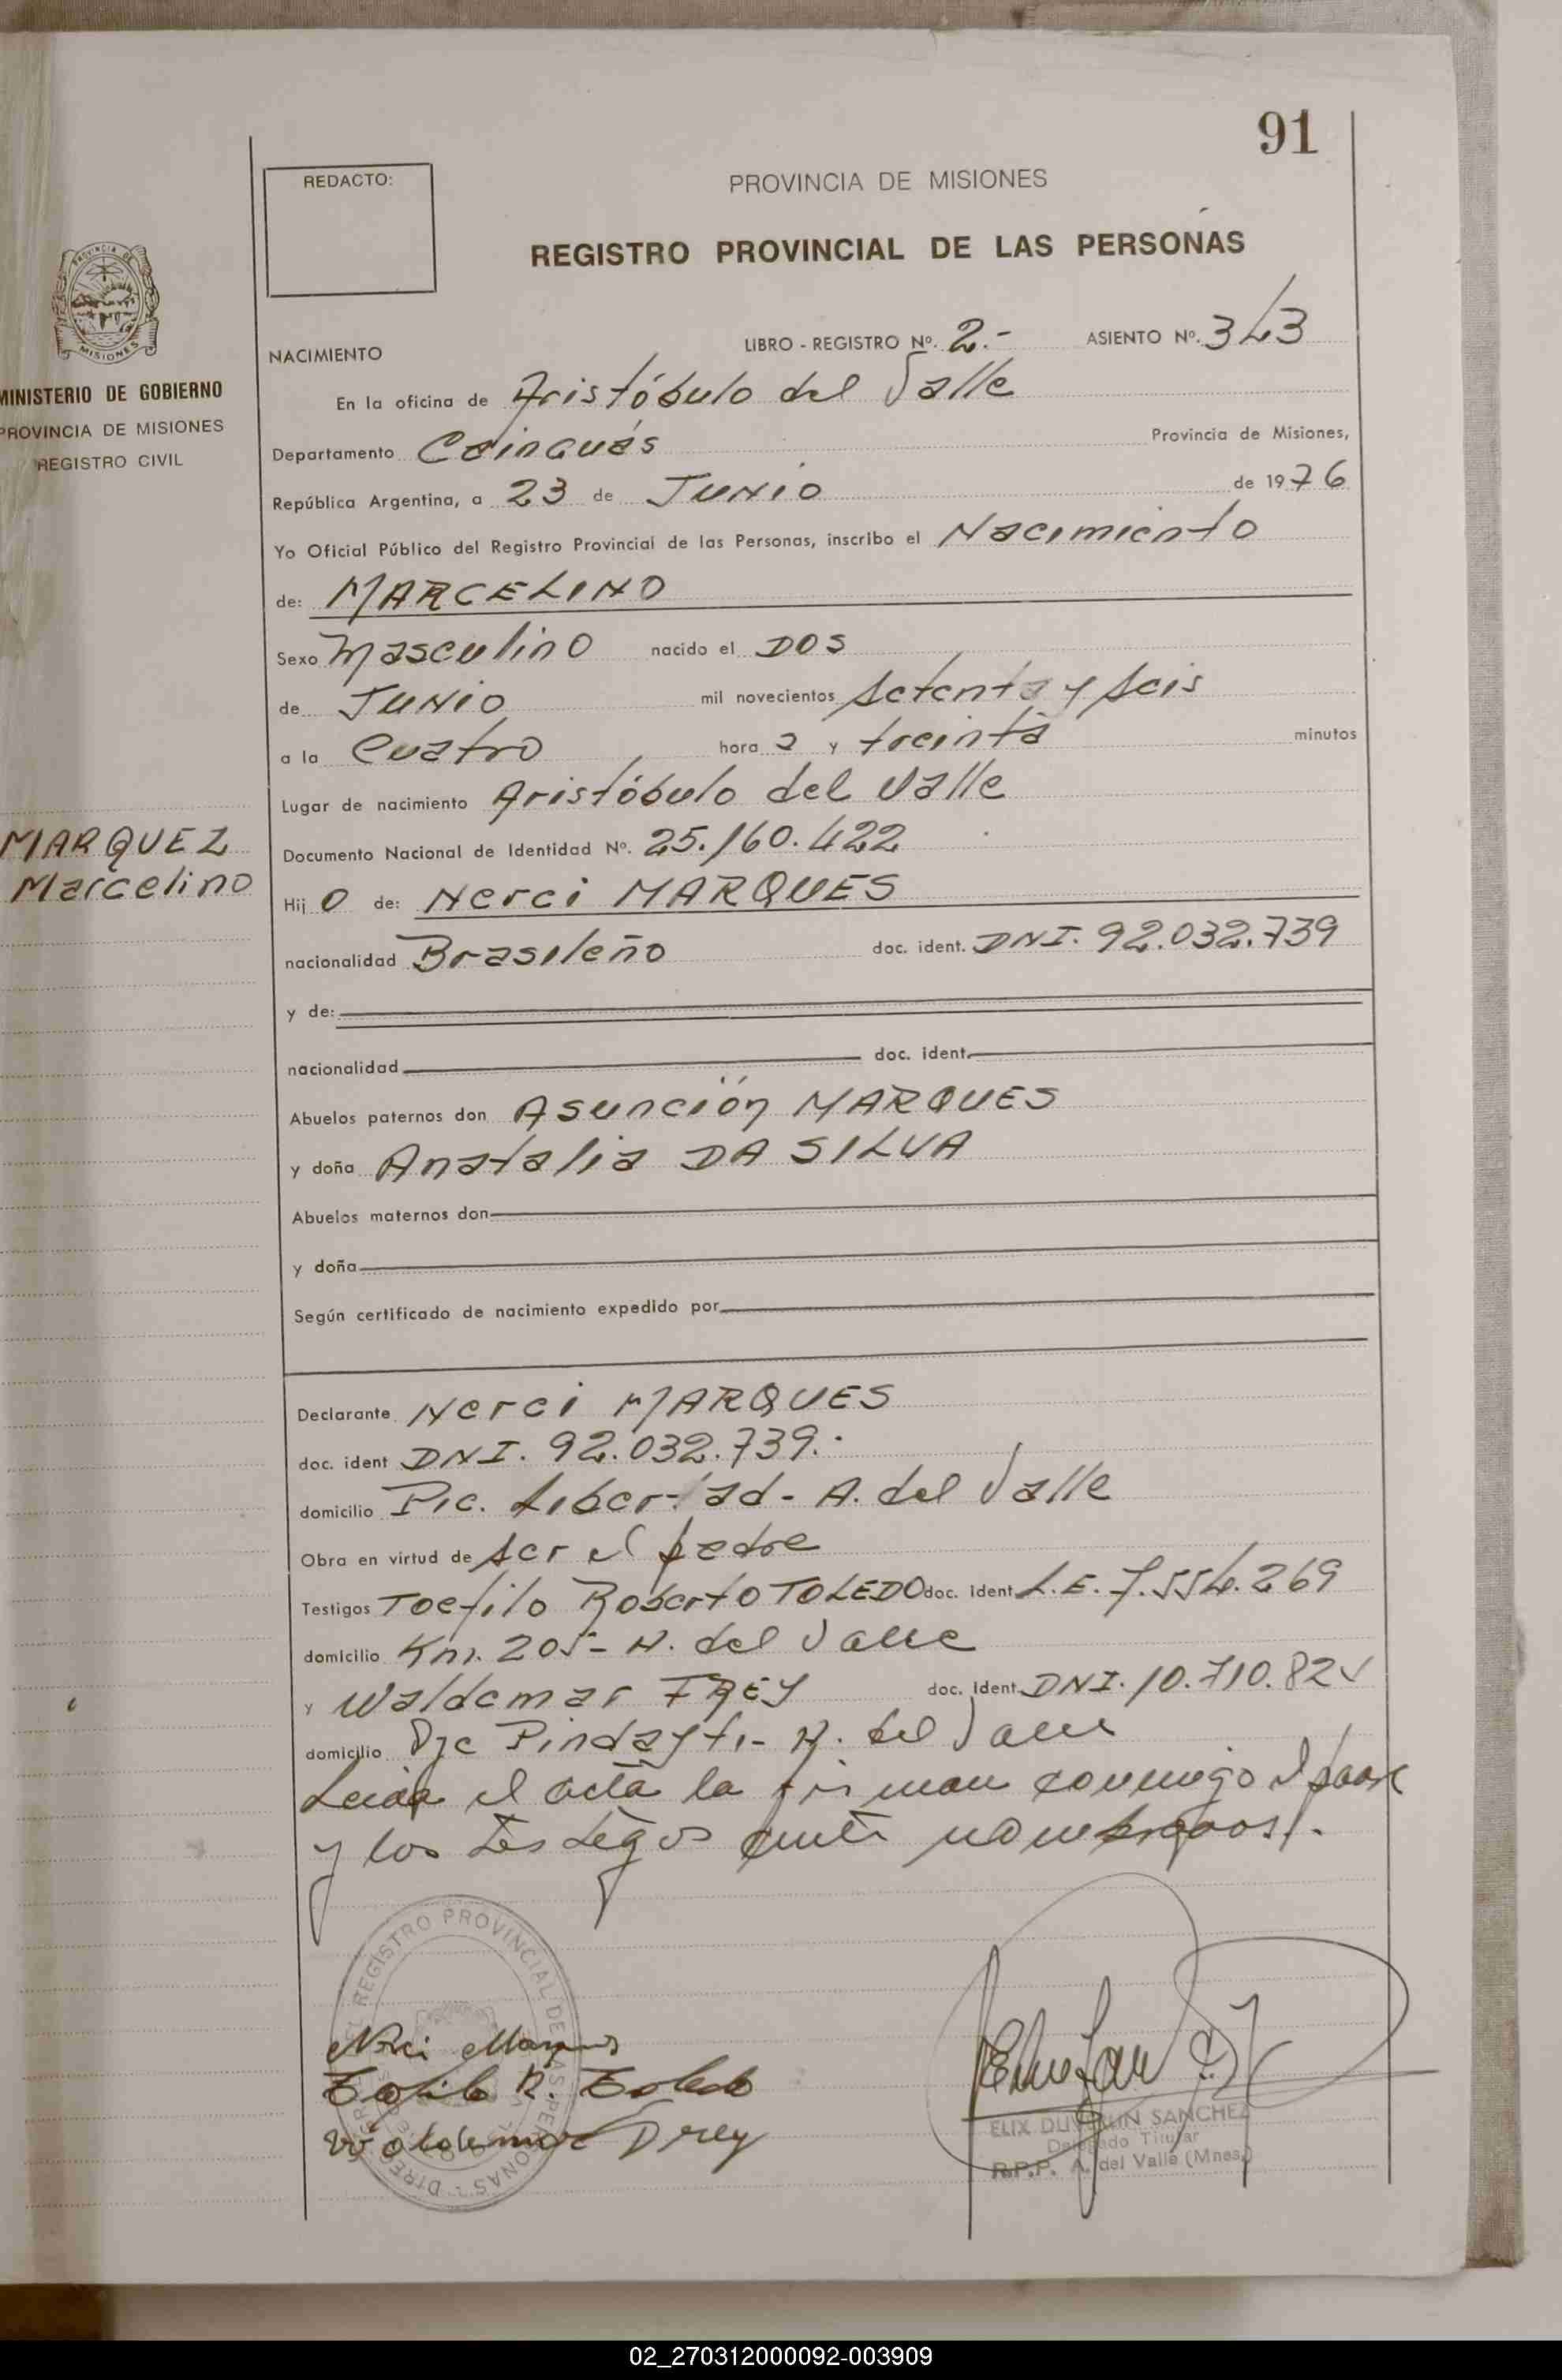 91
REDACTO:
PROVINCIA DE MISIONES
REGISTRO PROVINCIAL DE LAS PERSONAS
PROVINCIA DE
MISIONES
MINISTERIO DE GOBIERNO
PROVINCIA DE MISIONES
REGISTRO CIVIL
NACIMIENTO LIBRO - REGISTRO Nº. 2.- ASIENTO Nº. 343
En la oficina de Aristóbulo del Valle
Departamento Cainguás Provincia de Misiones,
República Argentina, a 23 de JUNIO de 1976
Yo Oficial Público del Registro Provincial de las Personas, inscribo el Nacimiento
de: MARCELINO
Sexo Masculino nacido el DOS
de JUNIO mil novecientos setenta y seis
a la cuatro hora s y treinta minutos
Lugar de nacimiento Aristóbulo del Valle
MARQUEZ
Marcelino
Documento Nacional de Identidad Nº. 25.160.422
Hij o de: Nerci MARQUES
nacionalidad Brasileño doc. ident. DNI. 92.032.739
y de:
nacionalidad doc. ident.
Abuelos paternos don Asunción MARQUES
y doña Anatalia DA SILVA
Abuelos maternos don
y doña
Según certificado de nacimiento expedido por
Declarante Nerci MARQUES
doc. ident DNI. 92.032.739.-
domicilio Pic. Libertad - A. del Valle
Obra en virtud de ser el padre
Testigos Toefilo Roberto TOLEDO doc. ident L.E. 7.554.269
domicilio Km. 205 - A. del Valle
y Waldemar FREY doc. Ident. DNI. 10.710.82
domicilio Pje Pindayti - A. del Valle
Leida el acta la firman conmigo el padre
y los testigos ante nombrados.-
REGISTRO PROVINCIAL DE LAS PERSONAS
Nerci Marques
Tofilo R. Toledo
Woldemar Drey
ELIX DUVERLIN SANCHEZ
Delegado Titular
R.P.P. A. del Valle (Mnes.)
02_270312000092-003909